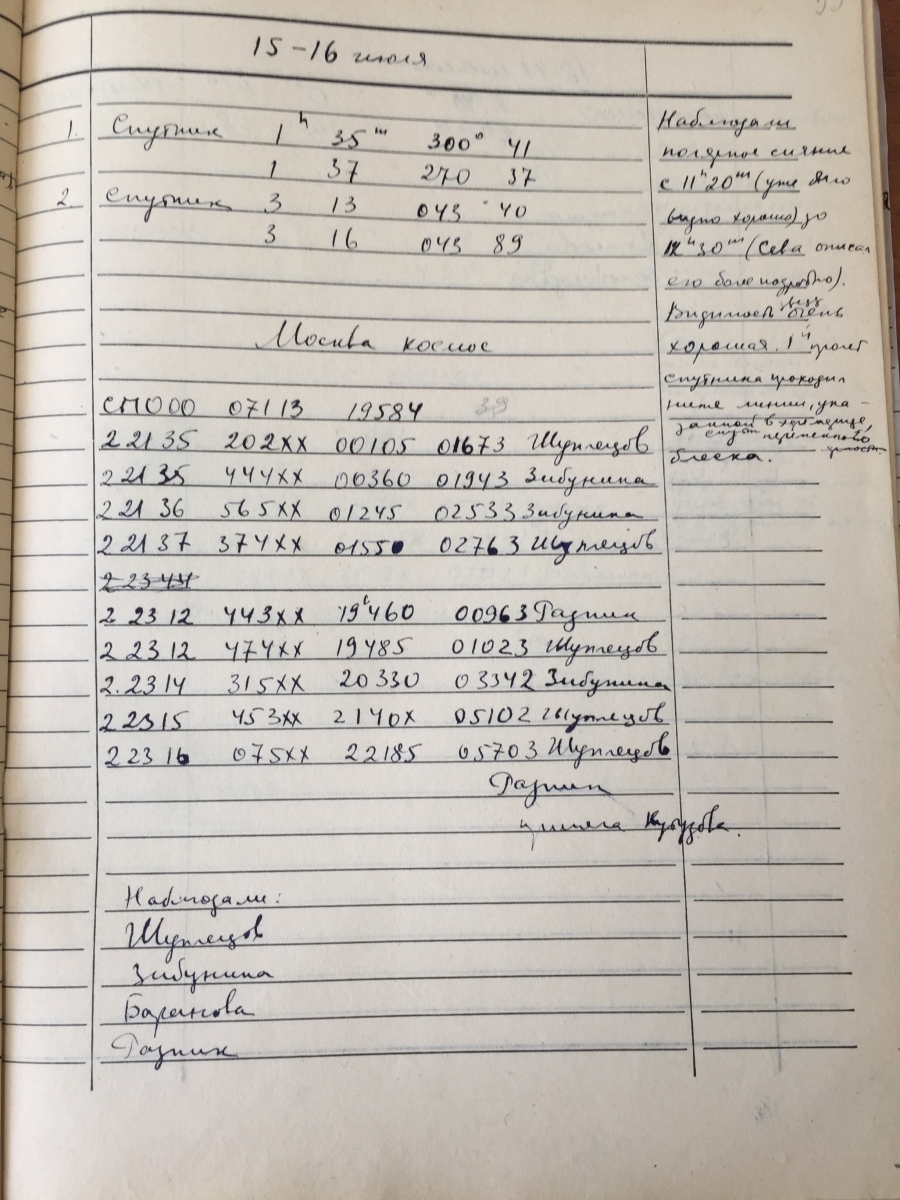 15-16 июля
1. Спутник 1ʰ 35ᵐ 300° 41
1 37 270 37
2. Спутник 3 13 043 40
3 16 043 89
Москва космос
СПООО 07113 19584 39
22135 202хх 00105 01673 Шуплецов
22135 444хх 00360 01943 Зибунина
22136 565хх 01245 02533 Зибунина
22137 374хх 01550 02763 Шуплецов
22344
22312 443хх 19460 00963 Разник
22312 474хх 19485 01023 Шуплецов
2.2314 315хх 20330 03342 Зибунина
22315 453хх 2140х 05102 Шуплецов
22316 075хх 22185 05703 Шуплецов
Разник
Кутузова.
Наблюдали:
Шуплецов
Зибунина
Баранова
Разник
Наблюдали
полярное сияние
с 11ʰ20ᵐ (уже было
видно хорошо) до
12ʰ30ᵐ (Сева описал
его более подробно).
Видимость звезд очень
хорошая. 1й пролет
спутника проходил
ниже линии, ука-
занной в
блеска.